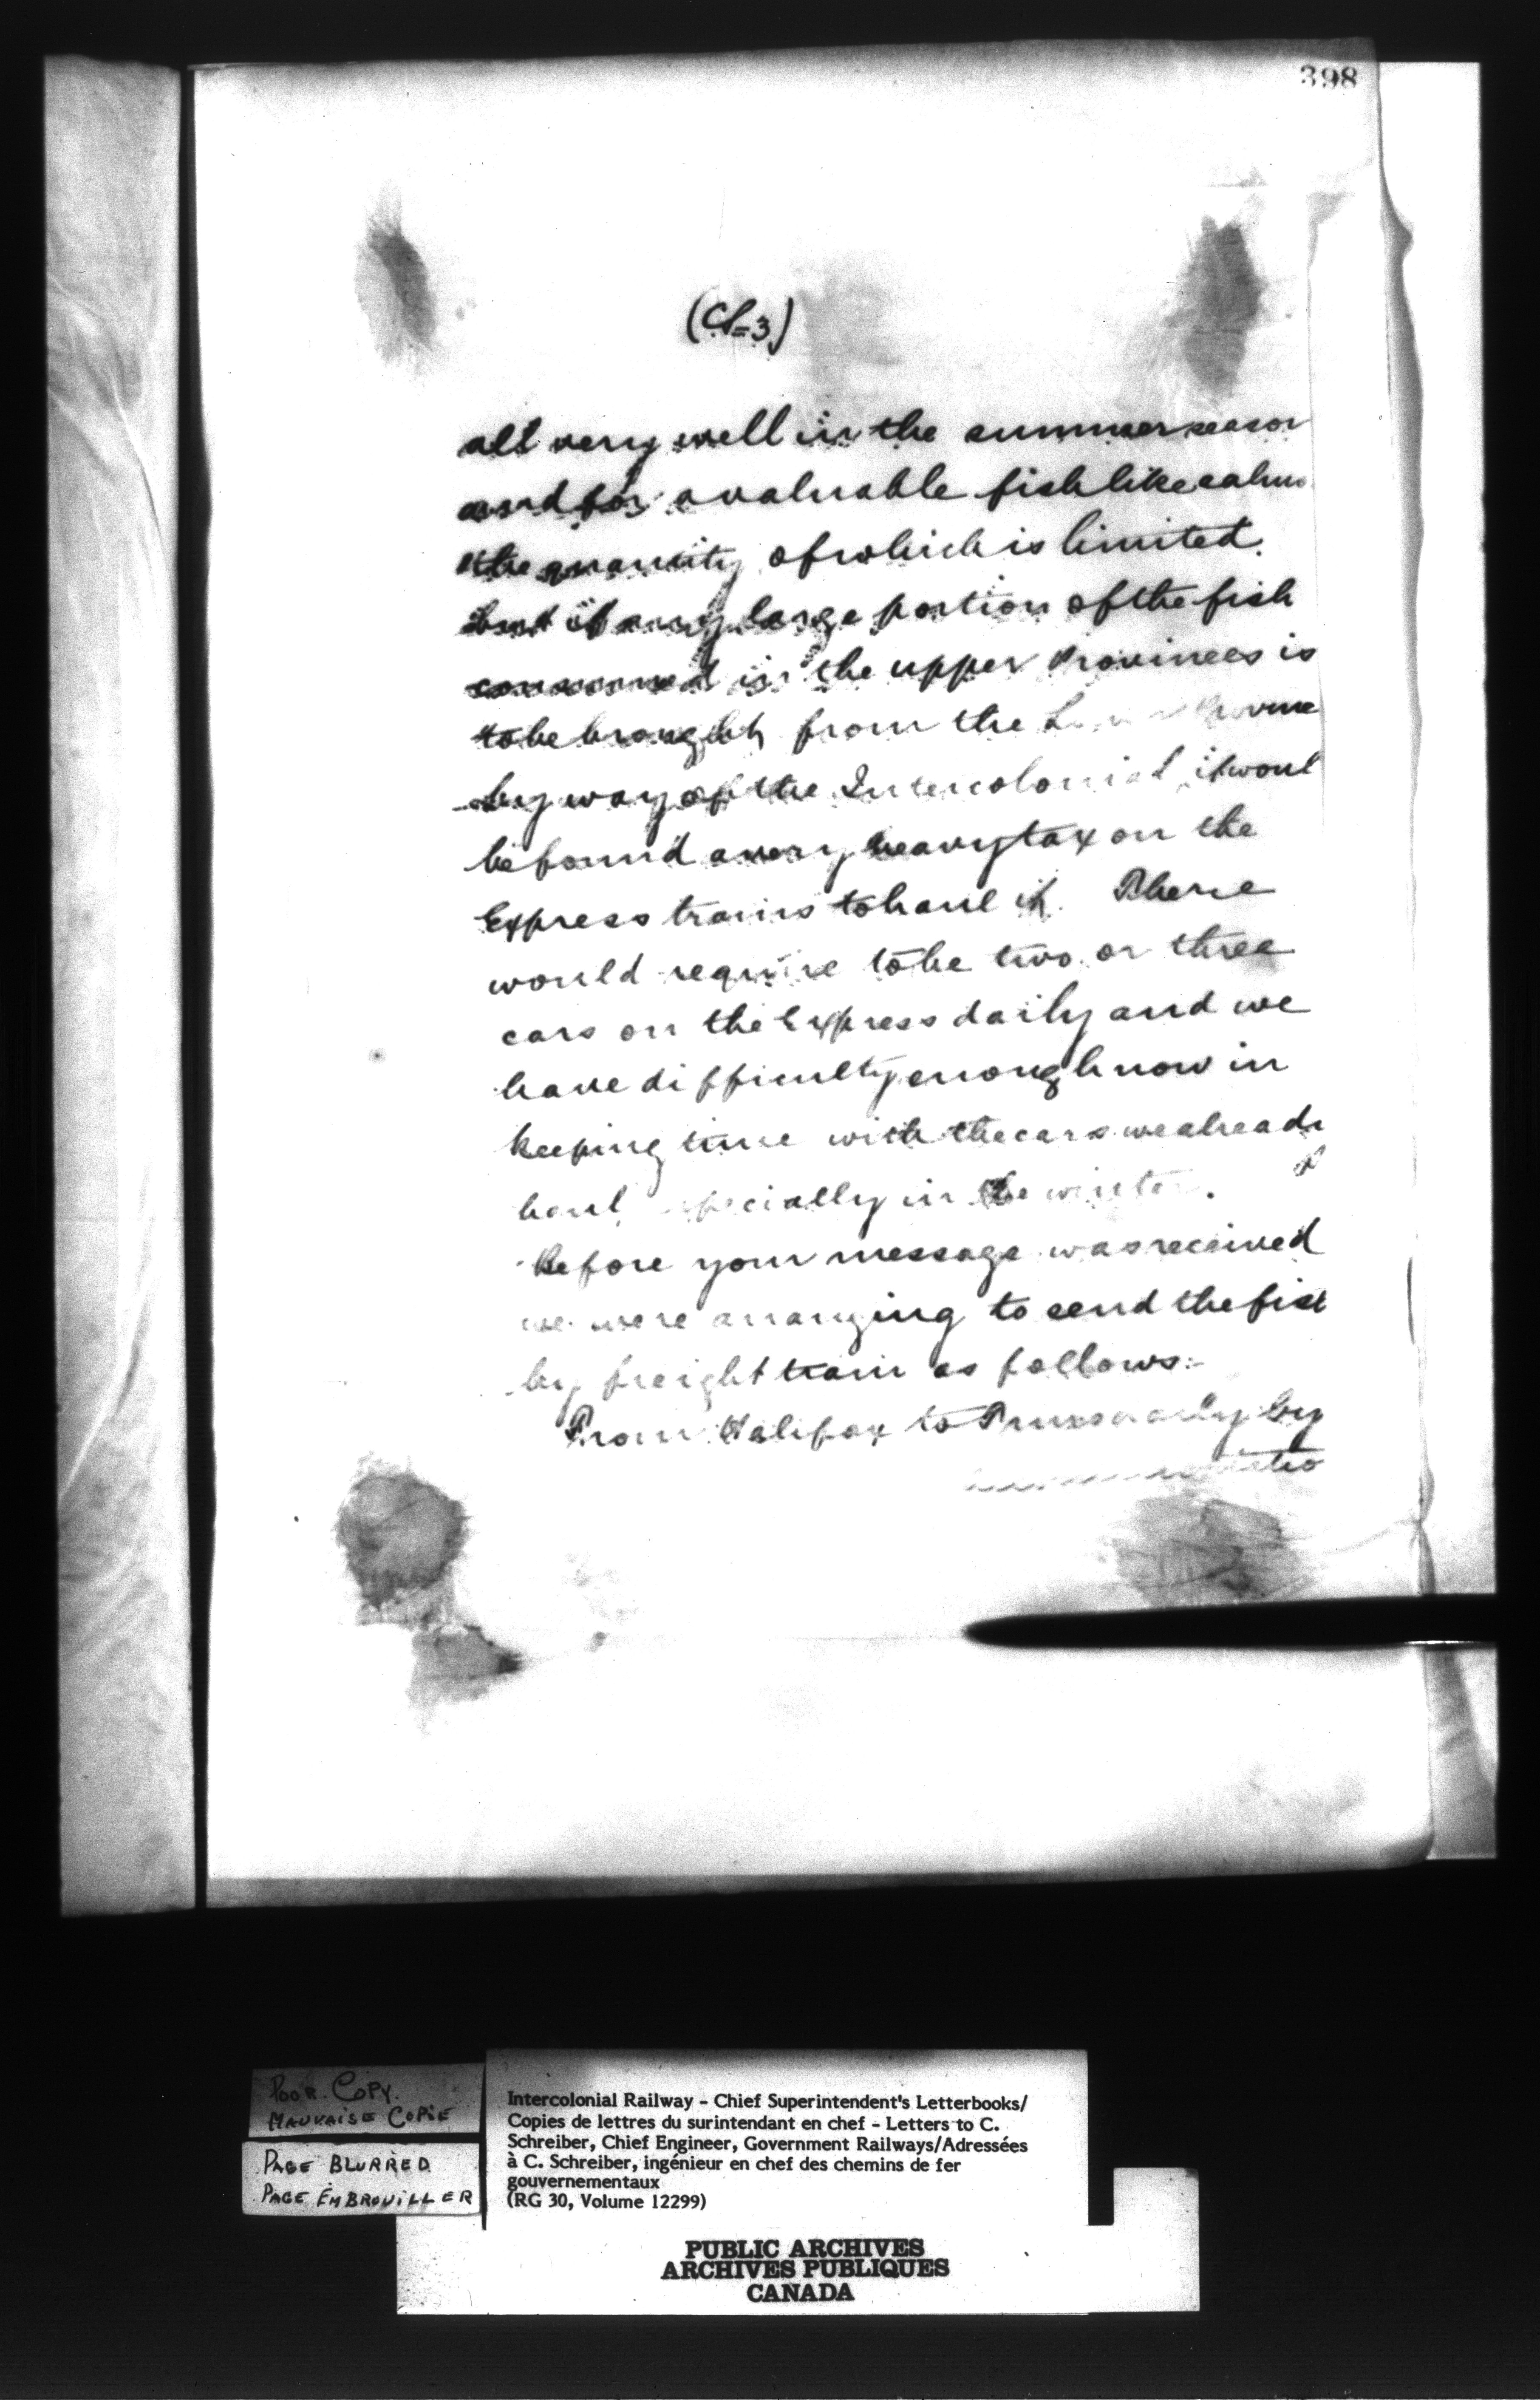 398
all very well in the summer season
and for a valuable fish like salmo
the quantity of which is limited.
but if any large portion of the fish
consumed in the upper Provinces is
to be brought from the Provine
by way of the Intercolonial, it woul
be found a very heavy tax on the
Express trains to haul it. There
would require to be two or three
cars on the Express daily and we
have difficulty enough now in
keeping time with the cars we alread
haul specially in the winter.
Before your message was received
we were arranging to send the fish
by freight train as follows:-
From Halifax to by
POOR COPY.
MAUVAISE COPIE
PAGE BLURRED
PAGE EMBROUILLER
Intercolonial Railway - Chief Superintendent's Letterbooks/
Copies de lettres du surintendant en chef - Letters to C.
Schreiber, Chief Engineer, Government Railways/Adressées
à C. Schreiber, ingénieur en chef des chemins de fer
gouvernementaux
(RG 30, Volume 12299)
PUBLIC ARCHIVES
ARCHIVES PUBLIQUES
CANADA